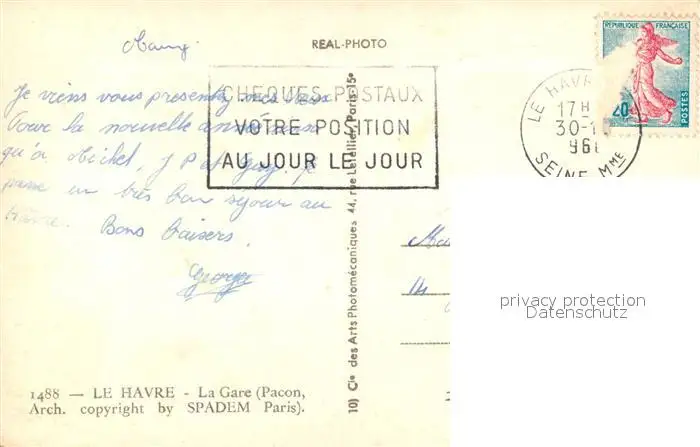 REAL-PHOTO
Je viens vous présenter mes vœux
Pour la nouvelle
qu'à Michel,
passe un très bon séjour au
Havre. Bons baisers.
Georges
CHEQUES POSTAUX
VOTRE POSITION
AU JOUR LE JOUR
LE HAVRE
17H
30-1
196
SEINE Mme
REPUBLIQUE FRANÇAISE
0,20
POSTES
10) Cie des Arts Photomécaniques 44, rue Letellier, Paris-15e
privacy protection
Datenschutz
1488 — LE HAVRE - La Gare (Pacon,
Arch. copyright by SPADEM Paris).